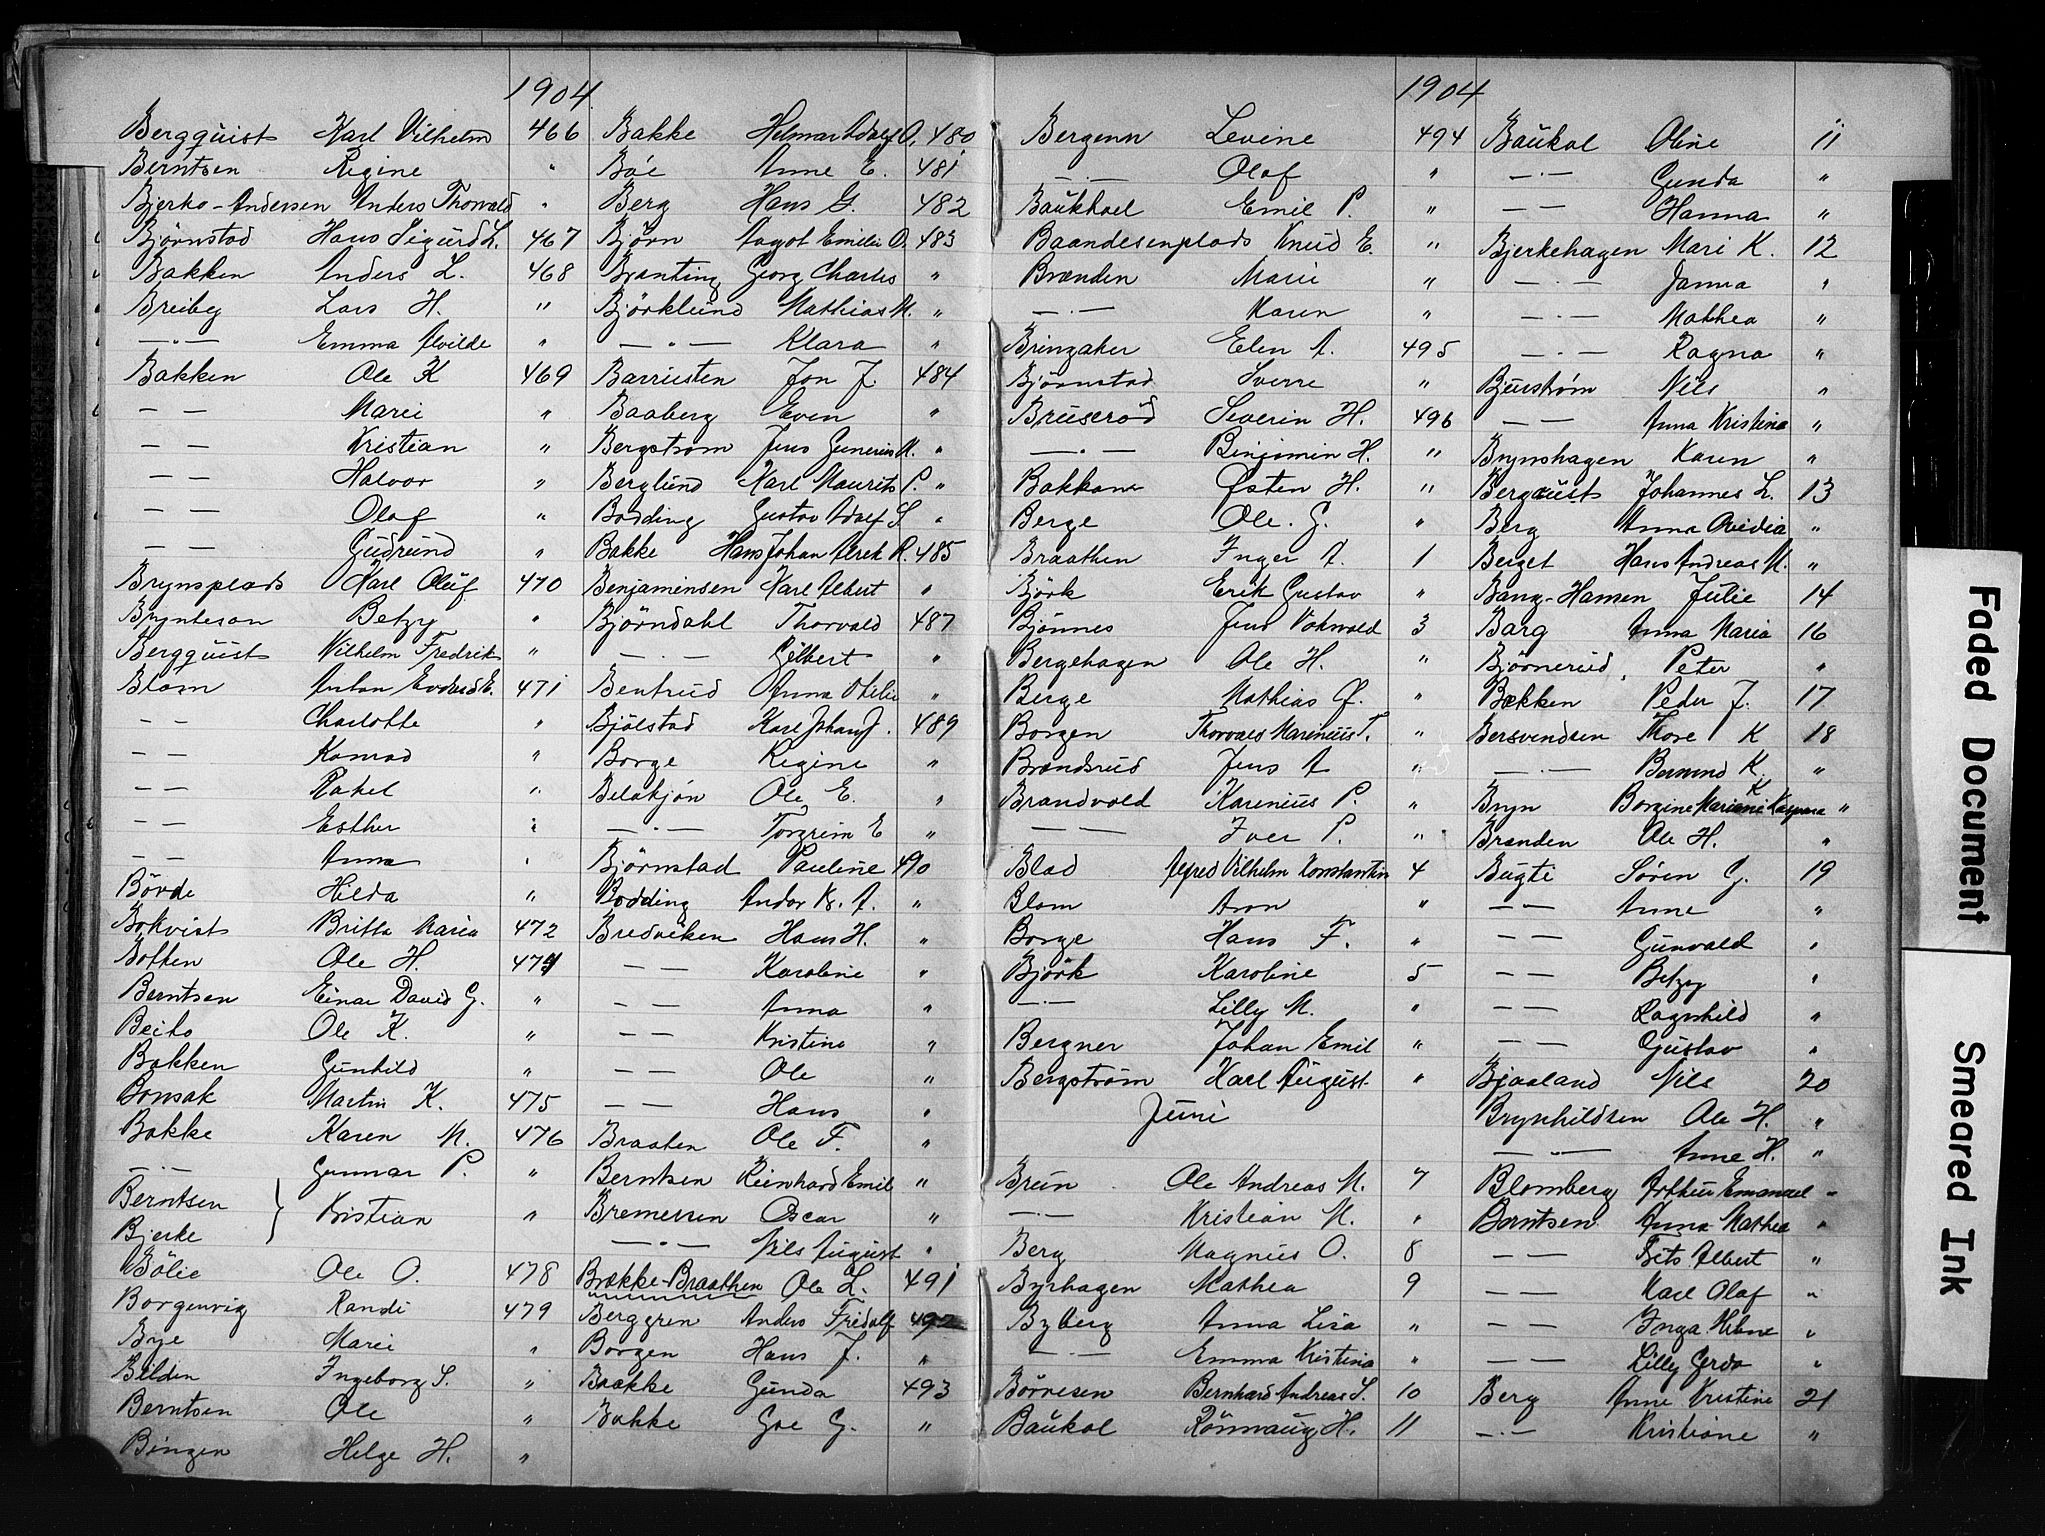 1904
Bergquist Karl Vilhelm 466
Berntsen Regine "
Bjerko-Andersen Anders Thorvald "
Björnstad Hans Sigurd L. 467
Bakken Anders L. 468
Breiby Lars H. "
— " — Emma Alvilde "
Bakken Ole K 469
— — Marei "
— — Kristian "
— — Halvor "
— — Olaf "
— — Gudrund "
Brynsplads Karl Oluf 470
Brynteson Betzy "
Bergquist Vilhelm Fredrik "
Blom Anton Evdard E. 471
— — Charlotte "
— — Konrad "
— — Rakel "
— — Esther "
— — Anna "
Bövde Hilda "
Bokvist Britta Maria 472
Botten Ole H. 474
Berntsen Einar David G. "
Beito Ole K. "
Bakken Gunhild "
Bonsak Martin K. 475
Bakke Karen M. 476
— . — Gunnar P. "
Berntsen } Kristian "
Bjerke
Bölie Ole O. 478
Borgenvig Randi 479
Bye Marei "
Bilden Ingeborg S. "
Berntsen Ole "
Bingen Helge H. "
Bakke Helmar Adolf O. 480
Böe Anne E. 481
Berg Hans G. 482
Björn Aagot Emilie O. 483
Bjanting Georg Charles "
Björklund Mathias M. "
— " — Klara "
Barrusten Jon J. 484
Baaberg Even "
Bergstrom Jens Gunerius M. "
Berglund Karl Maurits P. "
Bodding Gustav Adolf S "
Bakke Hans Johan Alrek R. 485
Benjaminsen Karl Albert "
Björndahl Thorvald 487
— . — Gilbert "
Bentrud Anna Otelie "
Bjölstad Karl Johan J. 489
Borge Regine "
Belakjön Ole E. "
— . — Torgrim E "
Björnstad Pauline 490
Bodding Andor Kr. A. "
Bredviken Hans H. "
— — Karoline "
— — Anna "
— — Kristine "
— — Ole "
— — Hans "
Braaten Ole F. "
Berntsen Reinhard Emil "
Bremersen Oscar "
— " — Nils August "
Brække-Braathen Ole L. 491
Berggren Anders Fridolf 492
Borgen Hans J. "
Baakke Gunda 493
Bakke Goe G. "
1904
Bergenn Levine 494
— . — Olaf "
Baukhol Emil P. "
Baandesenplads Knud E. "
Brænden Marie "
— . — Karen "
Bringaker Elen A. 495
Bjørnstad Sverre "
Bruserød Severin H. 496
— . — Binjamin H. "
Bakkane Østen H. "
Berge Ole. G. "
Braathen Inger A. 1
Björk Erik Gustav "
Bjönnes Jens Vohwald 3
Bergehagen Ole H. "
Berge Mathias Ø. "
Borgen Thorvald Marinius T. "
Brændsrud Jens A "
Brandvold Karenius P. "
— — Iver P. "
Blad Alfred Vilhelm Konstantin 4
Blom Aron "
Borge Hans F. "
Björk Karoline 5
— . — Lilly M. "
Bergner Johan Emil "
Bergström Karl August "
Juni
Brun Ole Andreas M. 7
— . — Kristian M. "
Berg Magnus O. 8
Byrhagen Mathea 9
Byberg Anna Lisa "
— . — Emma Kristina "
Börresen Bernhard Andreas S. 10
Baukol Rönnaug H. 11
Baukol Oline 11
— . — Gunda "
— — Hanna "
Bjerkehagen Mari K. 12
— . — Janna "
— . — Mathea "
— . — Ragna "
Bjurström Nils "
— — Anna Kristina "
Brynshagen Karen "
Bergcust Johannes L. 13
Berg Anna Ovidia "
Berget Hans Andreas M. "
Bang-Hansen Julie 14
Barg Anna Maria 16
Björnerud Peter "
Bækken Peder J. 17
Bersvendsen Thore K 18
— . — Bersvend K. "
Bryn Borgine Mariane K Kaspara "
Brænden Ole H. "
Bugti Sören G. 19
— — Anne "
— — Gunvald "
— — Betzy "
— — Ragnhild "
— — Gustav "
Bjaaland Nils 20
Brynhildsen Ole H. "
— " — Anne H. "
Blomberg Arthur Emanuel "
Berntsen Anna Mathea "
— — Tits Albert "
— — Karl Olaf "
— — Inga Helene "
— — Lilly Gerda "
Berg Anne Kristine 21
— . — Kristiane "
Faded Document
Smeared Ink